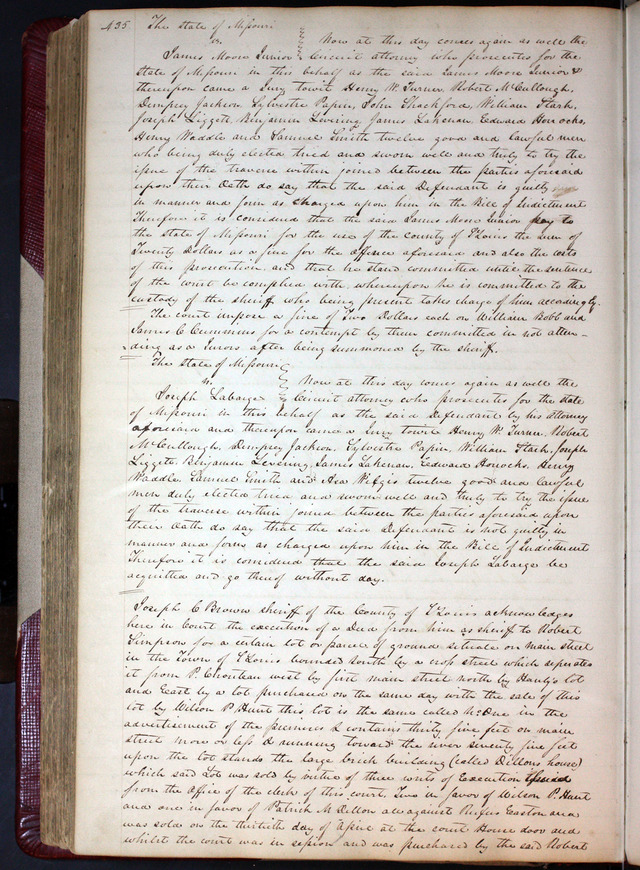 435 The State of Missouri
vs. Now at this day comes again as well the
James Moore Junior Circuit attorney who prosecutes for the
State of Missouri in this behalf as the said James Moore Junior &
thereupon came a Jury towit Henry W. Turner, Robert McCullough,
Dempsey Jackson, Sylvestre Papin, John Shackford, William Stark,
Joseph Liggett, Benjamin Levering, James Lakenan, Edward Horrocks,
Henry Waddle and Samuel Smith twelve good and lawful men
who being duly elected tried and sworn well and truly to try the
issue of the traverse within joined between the parties aforesaid
upon their Oath do say that the said Defendant is guilty
in manner and form as charged upon him in the Bill of Indictment
Therefore it is considered that the said James Moore Junior pay to
the State of Missouri for the use of the County of St Louis the sum of
Twenty Dollars as a fine for the offence aforesaid and also the costs
of this prosecution, and that he stand committed until the sentence
of the court be complied with, whereupon he is committed to the
custody of the sheriff who being present takes charge of him accordingly.
The court impose a fine of Two Dollars each on William Bobb and
James C. Cummins for a contempt by them committed in not atten-
ding as a Jurors after being summoned by the sheriff.
The State of Missouri
vs. Now at this day comes again as well the
Joseph Labarge Circuit attorney who prosecutes for the State
of Missouri in this behalf as the said Defendant by his attorney
aforesaid and thereupon came a Jury towit Henry W. Turner, Robert
McCullough, Dempsey Jackson, Sylvestre Papin, William Stark, Joseph
Liggett, Benjamin Levering, James Lakenan, Edward Horrocks, Henry
Waddle, Samuel Smith and Asa twelve good and lawful
men duly elected tried, and sworn well and truly to try the issue
of the traverse within joined between the parties aforesaid upon
their Oath do say that the said Defendant is not guilty in
manner and form as charged upon him in the Bill of Indictment
Therefore it is considered that the said Joseph Labarge be
acquitted and go thereof without day.
Joseph C Brown sheriff of the County of St Louis acknowledges
here in Court the execution of a Deed from him as sheriff to Robert
Simpson for a certain lot or parcel of ground situate on main street
in the Town of St Louis bounded north by a cross street which seperates
it from P. Chouteau west by first main street north by Hunts lot
and East by a lot purchased on the same day with the sale of this
lot by Wilson P Hunt this lot is the same called No One in the
advertisement of the premises & contains thirty five feet on main
street more or less & running toward the river seventy five feet
upon the lot stands the large brick building (called Dillons house)
which said Lot was sold by virtue of three writs of Execution issued
from the office of the clerk of this court. Two in favor of Wilson P. Hunt
and one in favor of Patrick M Dillon all against Rufus Easton and
was sold on the thirtieth day of April at the court House door and
whilst the court was in session and was purchased by the said Robert